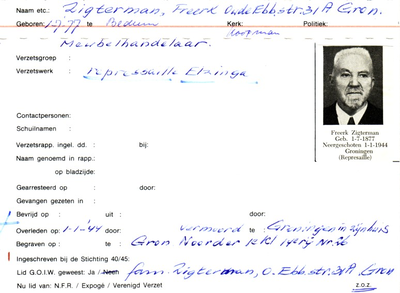 Naam etc.: Zigterman, Freerk Oude Ebb.str. 31A Gron.
Geboren: 1-7-77 te Bedum Kerk: Politiek:
Meubelhandelaar. koopman
Verzetsgroep :
Verzetswerk : represaille Elzinga
Contactpersonen:
Schuilnaam :
Verzetsrapp. ingel. dd. : bij:
Naam genoemd in rapp.:
op bladzijde:
Freerk Zigterman
Geb. 1-7-1877
Neergeschoten 1-1-1944
Groningen
(Represaille)
Gearresteerd op : door:
Gevangen gezeten in :
Bevrijd op : uit : door:
Overleden op : 1-1-'44 door: vermoord te : Groningen in zijn huis
Begraven op : te : Gron Noorder
Ingeschreven bij de Stichting 40/45:
Lid G.O.I.W. geweest: Ja / Neen fam. Zigterman, O. Ebb. str. 31A, Gron
Nu lid van: N.F.R. / Expogé / Verenigd Verzet z.o.z.